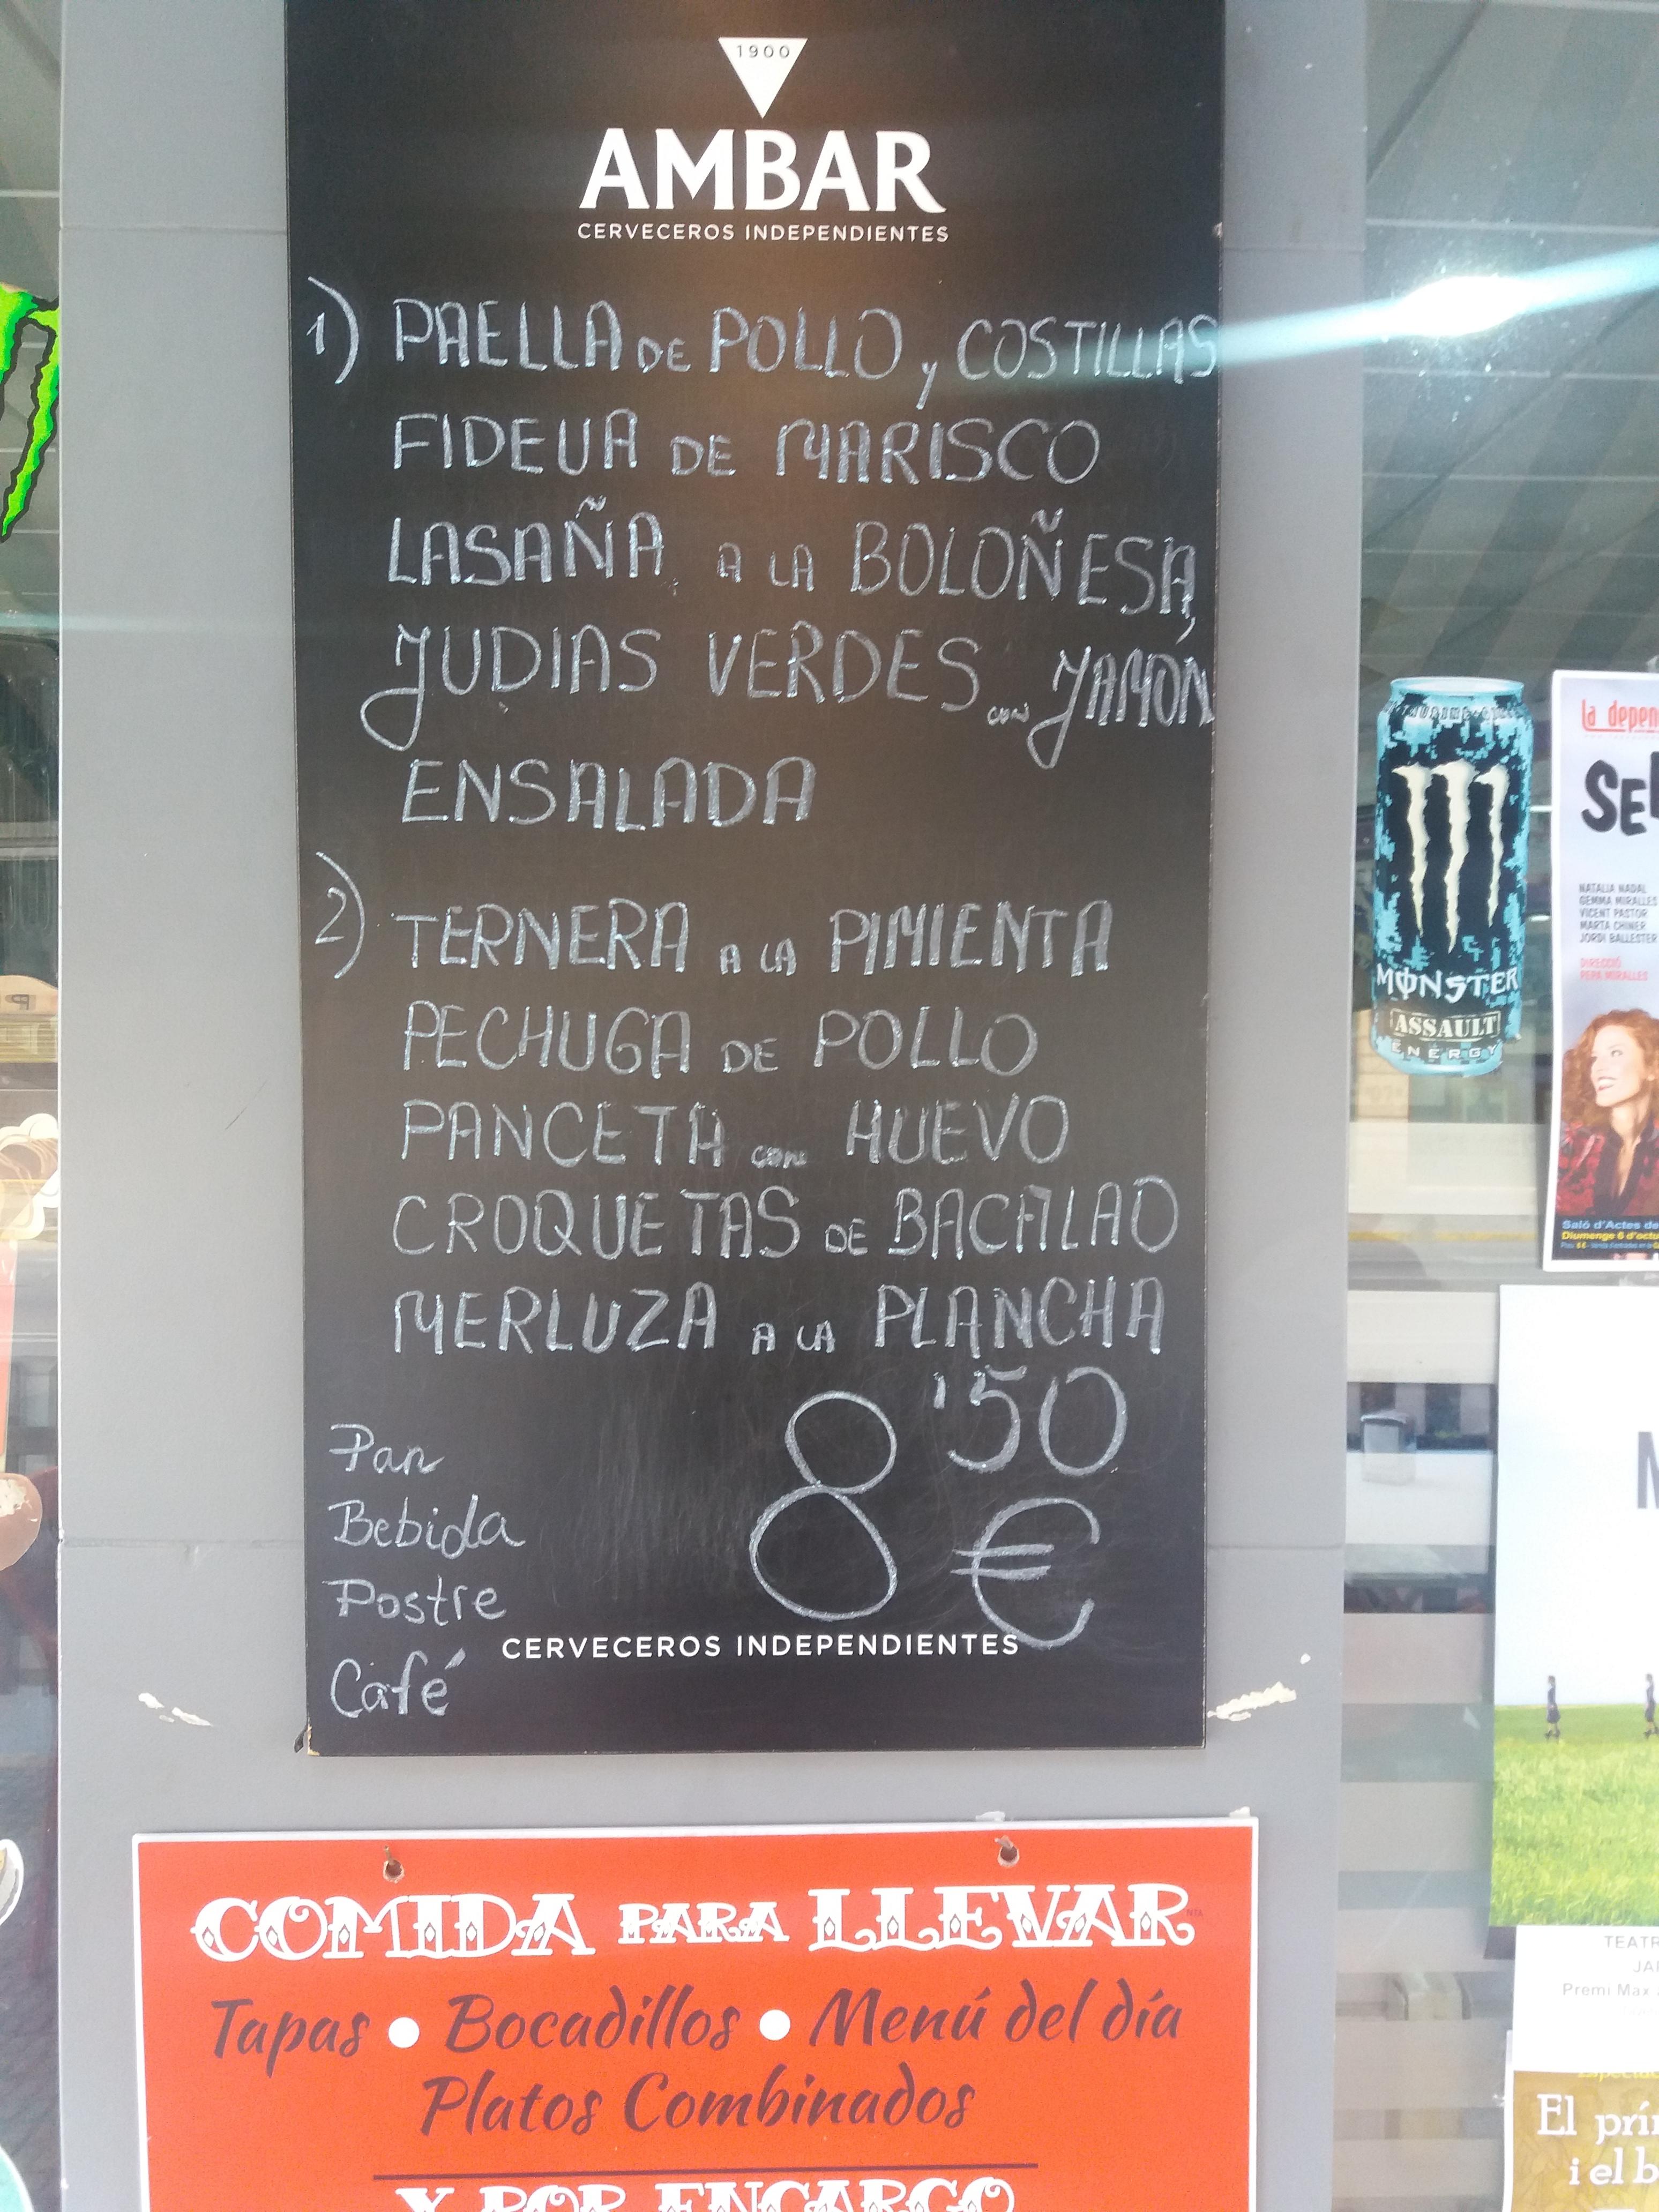 1900
AMBAR
CERVECEROS INDEPENDIENTES
1) PAELLA DE POLLO y COSTILLAS
FIDEUA DE MARISCO
LASAÑA A LA BOLOÑESA,
JUDIAS VERDES con JAMÓN
ENSALADA
2) TERNERA A LA PIMIENTA
PECHUGA DE POLLO
PANCETA con HUEVO
CROQUETAS DE BACALAO
MERLUZA A LA PLANCHA
8'50 €
Pan
Bebida
Postre
Café
CERVECEROS INDEPENDIENTES
COMIDA PARA LLEVAR
Tapas • Bocadillos • Menú del día
Platos Combinados
Y POR ENCARGO
MONSTER
ASSAULT
ENERGY
la depen
SE
NATALIA NADAL
GEMMA MIRALLES
VICENT PASTOR
MARTA CHINER
JORDI BALLESTER
DIRECCIÓ
PEPA MIRALLES
Saló d'Actes de
Diumenge 6 d'octu
M
TEATR
JA
Premi Max
El prín
i el b